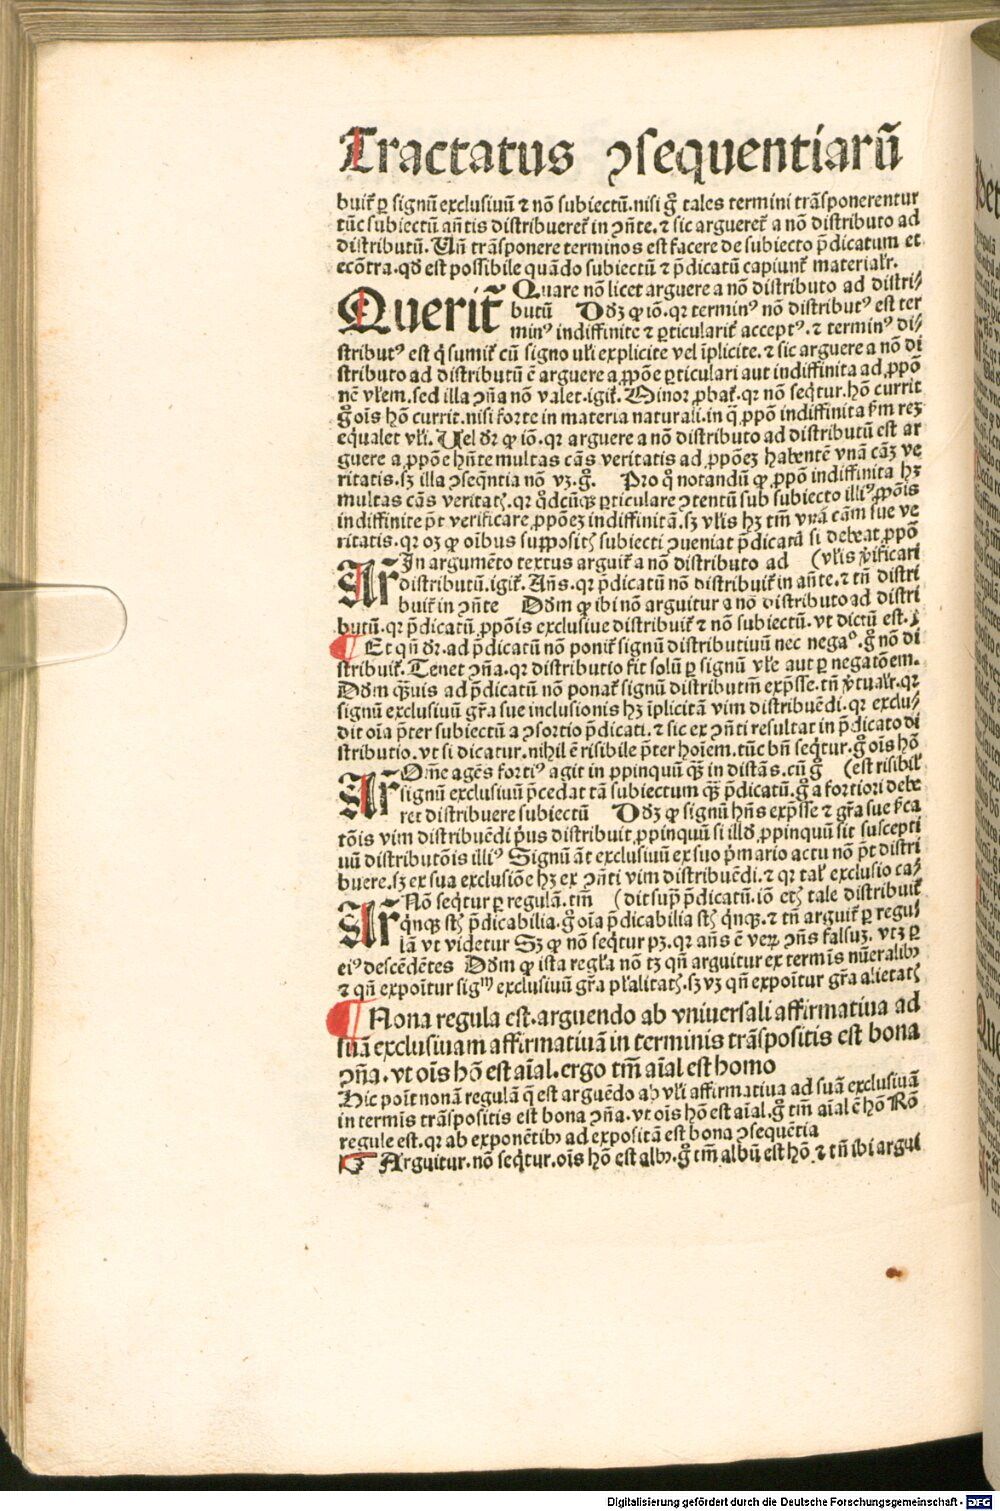 Tractatus ꝯsequentiarū
buit᷑ ꝑ signū exclusiuū ⁊ nō subiectū.nisi gͦ tales termini trāsponerentur
tūc subiectū an̄tis distribueret᷑ in ꝯn̄te.⁊ sic argueret᷑ a nō distributo ad
distributū. Un̄ trāsponere terminos est facere de subiecto p̄dicatum et
ecōtra.qd̄ est possibile quādo subiectū ⁊ p̄dicatū capiunt᷑ materialr̄.
Querit᷑ Quare nō licet arguere a nō distributo ad distri⸗
butū Dd̄ꝫ ꝙ iō.qr terminꝰ nō distributꝰ est ter
minꝰ indiffinite ⁊ ꝑticularit᷑ acceptꝰ.⁊ terminꝰ di⸗
stributꝰ est q̇ sumit᷑ cū signo vl̄i explicite vel īplicite.⁊ sic arguere a nō di
stributo ad distributū ē arguere a ꝓpōe ꝑticulari aut indiffinita ad ꝓpō
nē vl̄em.sed illa ꝯn̄a nō valet.igit᷑. Minor ꝓbat᷑.qr nō seqt̄ur.hō currit
gͦ ois hō currit.nisi forte in materia naturali.in q̄ ꝓpō indiffinita ẜm reꝫ
equalet vl̄i. Uel dr̄ ꝙ iō.qr arguere a nō distributo ad distributū est ar
guere a ꝓpōe hn̄te multas cās veritatis ad ꝓpōeꝫ habentē vnā cāꝫ ve
ritatis.sꝫ illa ꝯseqn̄tia nō vꝫ.gͦ. Pro qͦ notandū ꝙ ꝓpō indiffinita hꝫ
multas cās veritatꝭ.qr qd̄cūqꝫ ꝑticulare ꝯtentū sub subiecto illiꝰ ꝓpōis
indiffinite pōt verificare ꝓpōeꝫ indiffinitā.sꝫ vl̄is hꝫ tm̄ vnā cām sue ve
ritatis.qr oꝫ ꝙ oībus suppositꝭ subiecti ꝯueniat p̄dicatū si debeat ꝓpō
Ar In argumēto textus arguit᷑ a nō distributo ad (vl̄is v̓ificari
distributū.igit᷑. An̄s.qr p̄dicatū nō distribuit᷑ in an̄te.⁊ tn̄ distri
buit᷑ in ꝯn̄te Dd̄m ꝙ ibi nō arguitur a nō distributo ad distri
butū.qr p̄dicatū ꝓpōis exclusiue distribuit᷑ ⁊ nō subiectū.vt dictū est.
¶ Et qn̄ dr̄.ad p̄dicatū nō ponit᷑ signū distributiuū nec negaᵒ.gͦ nō di
stribuit᷑. Tenet ꝯn̄a.qr distributio fit solū ꝑ signū vl̄e aut ꝑ negatōem.
Dd̄m qͣ̄uis ad p̄dicatū nō ponat᷑ signū distributiuū exp̄sse.tn̄ v̓tualr̄.qr
signū exclusiuū gr̄a sue inclusionis hꝫ īplicitā vim distribuēdi.qr exclu⸗
dit oīa p̄ter subiectū a ꝯsortio p̄dicati.⁊ sic ex ꝯn̄ti resultat in p̄dicato di
stributio.vt si dicatur.nihil ē risibile p̄ter hoīem.tūc bn̄ seqt̄ur.gͦ oīs hō
Ar Om̄e agēs fortiꝰ agit in ꝓpinquū qͣ̄ in distās.cū gͦ (est risibil᷑
signū exclusiuū p̄cedat tā subiectum qͣ̄ p̄dicatū.gͦ a fortiori debe
ret distribuere subiectū Dd̄ꝫ ꝙ signū hn̄s exp̄sse ⁊ gr̄a sue ẜca
tōis vim distribuēdi p̓us distribuit ꝓpinquū si illd̄ ꝓpinquū sit suscepti
uū distributōis illiꝰ Signū āt exclusiuū ex suo p̓mario actu nō pōt distri
buere.sꝫ ex sua exclusiōe hꝫ ex ꝯn̄ti vim distribuēdi.⁊ qr tal᷑ exclusio ca⸗
Ar Nō seqt̄ur ꝑ regulā.tm̄ (dit sup̄ p̄dicatū.iō etꝭ tale distribuit᷑
q̇nqꝫ st̄ p̄dicabilia.gͦ oīa p̄dicabilia st̄ q̇nqꝫ.⁊ tn̄ arguit᷑ ꝑ regu⸗
lā vt videtur Sꝫ ꝙ nō seqt̄ur pꝫ.qr an̄s ē veꝝ ꝯn̄s falsuꝫ. vtꝫ ꝑ
eiꝰ descēdētes Dd̄m ꝙ ista regl̄a nō tꝫ qn̄ arguitur ex termīs nūeralibꝰ
⁊ qn̄ expoītur sigᵐ exclusiuū gr̄a pl̄alitatꝭ.sꝫ vꝫ qn̄ expoītur gr̄a alietatꝭ
¶ Nona regula est.arguendo ab vniuersali affirmatiua ad
suā exclusiuam affirmatiuā in terminis trāspositis est bona
ꝯn̄a.vt oīs hō est aīal.ergo tm̄ aīal est homo
Hic poīt nonā regulā q̄ est arguēdo ab vl̄i affirmatiua ad suā exclusiuā
in termīs trāspositis est bona ꝯn̄a.vt oīs hō est aīal.gͦ tm̄ aīal ē hō Rō
regule est.qr ab exponētibꝰ ad expositā est bona ꝯsequētia
¶ Arguitur.nō seqt̄ur.oīs hō est albꝰ.gͦ tm̄ albū est hō ⁊ tn̄ ibi argui
Digitalisierung gefördert durch die Deutsche Forschungsgemeinschaft - DFG